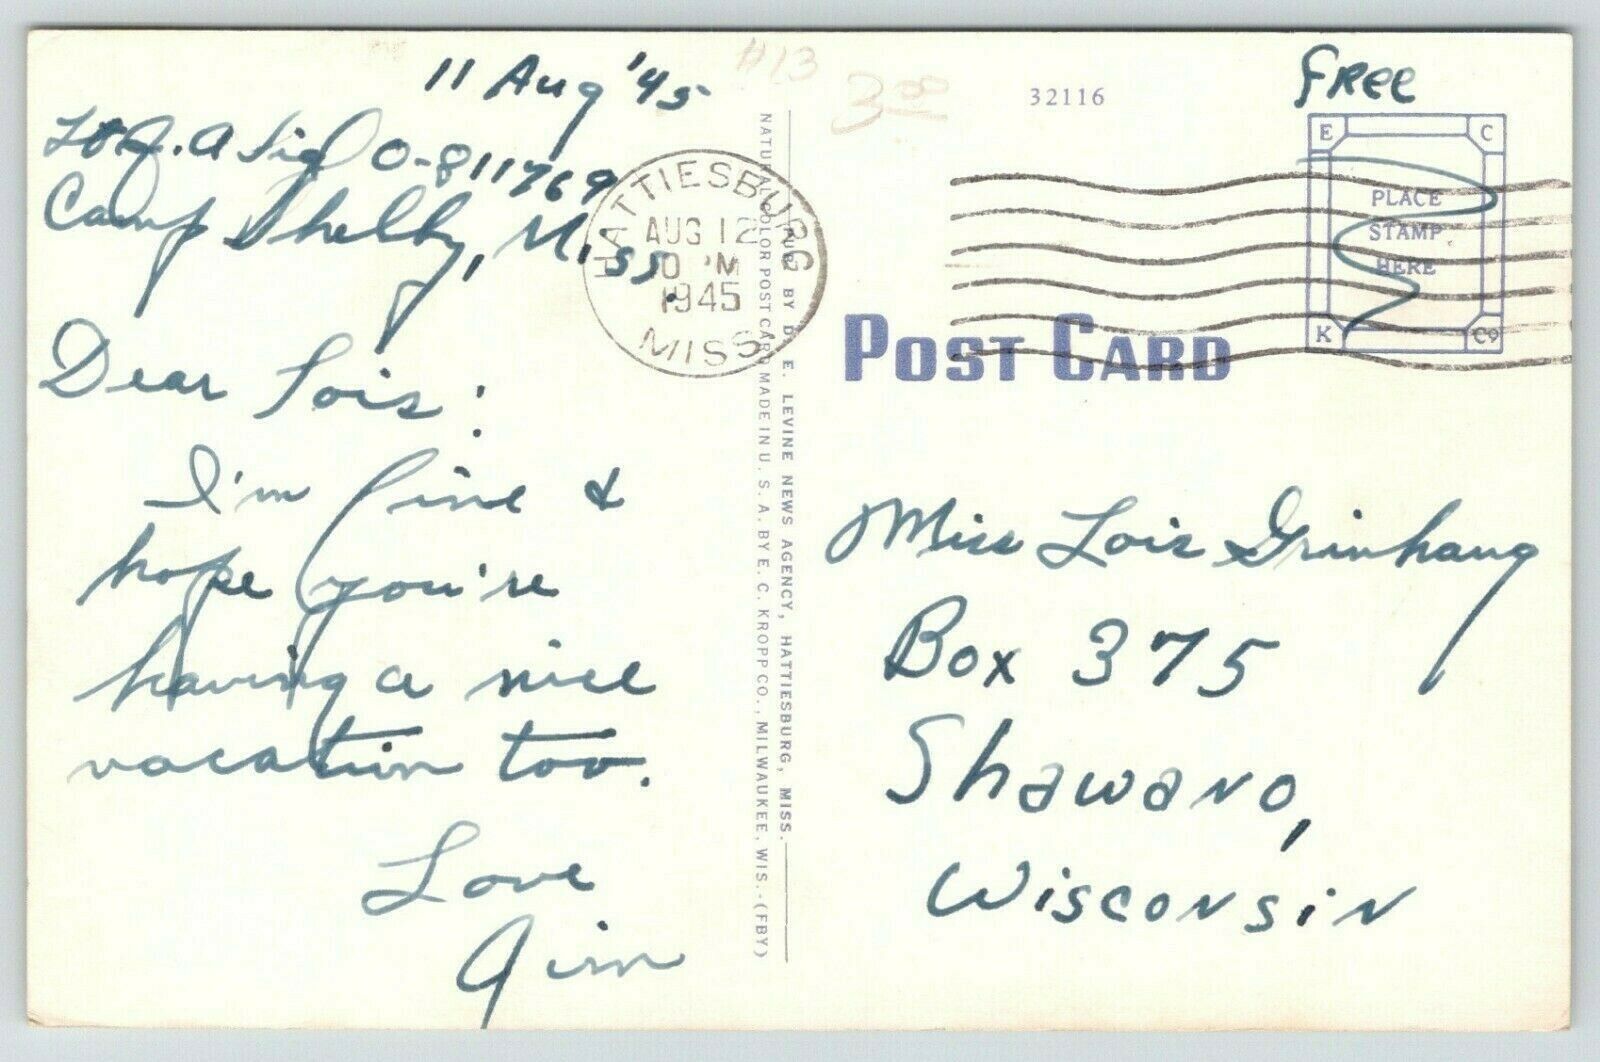 11 Aug '45
Lt J. A Sigl O-811769
Camp Shelby, Miss.
Dear Lois:
I'm fine &
hope you're
having a nice
vacation too.
Love
Jim
#13
3.00
32116
Free
HATTIESBURG
AUG 12
M
1945
MISS
E C
PLACE
STAMP
HERE
K Co
POST CARD
PUB. BY D. E. LEVINE NEWS AGENCY, HATTIESBURG, MISS.
NATURAL COLOR POST CARD MADE IN U. S. A. BY E. C. KROPP CO., MILWAUKEE, WIS.-(FBY)
Miss Lois
Box 375
Shawano,
Wisconsin